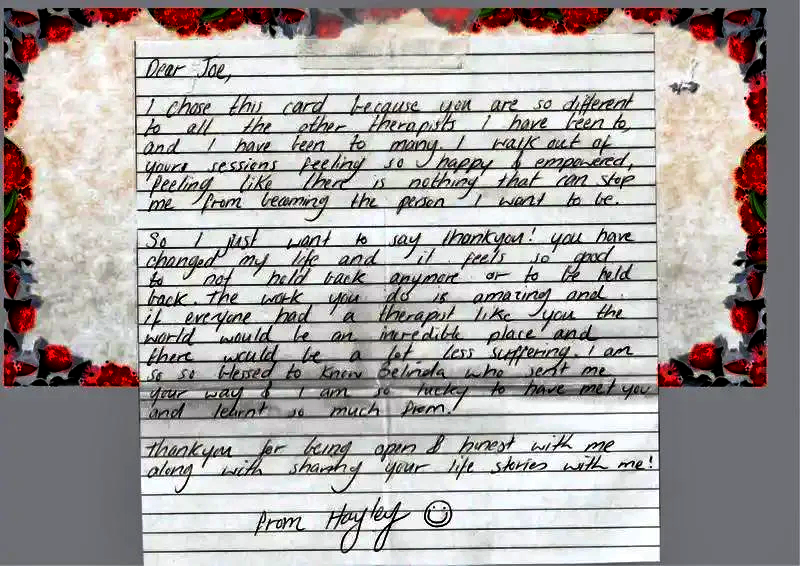 Dear Joe,
I chose this card because you are so different
to all the other therapists I have been to,
and I have been to many. I walk out of
yours sessions feeling so happy & empowered,
feeling like there is nothing that can stop
me from becoming the person I want to be.
So I just want to say thankyou! you have
changed my life and it feels so good
to not hold back anymore or to be held
back. The work you do is amazing and
if everyone had a therapist like you the
world would be an incredible place and
there would be a lot less suffering. I am
so so blessed to know Belinda who sent me
your way & I am so lucky to have met you
and learnt so much from!
thankyou for being open & honest with me
along with sharing your life stories with me!
From Hayley